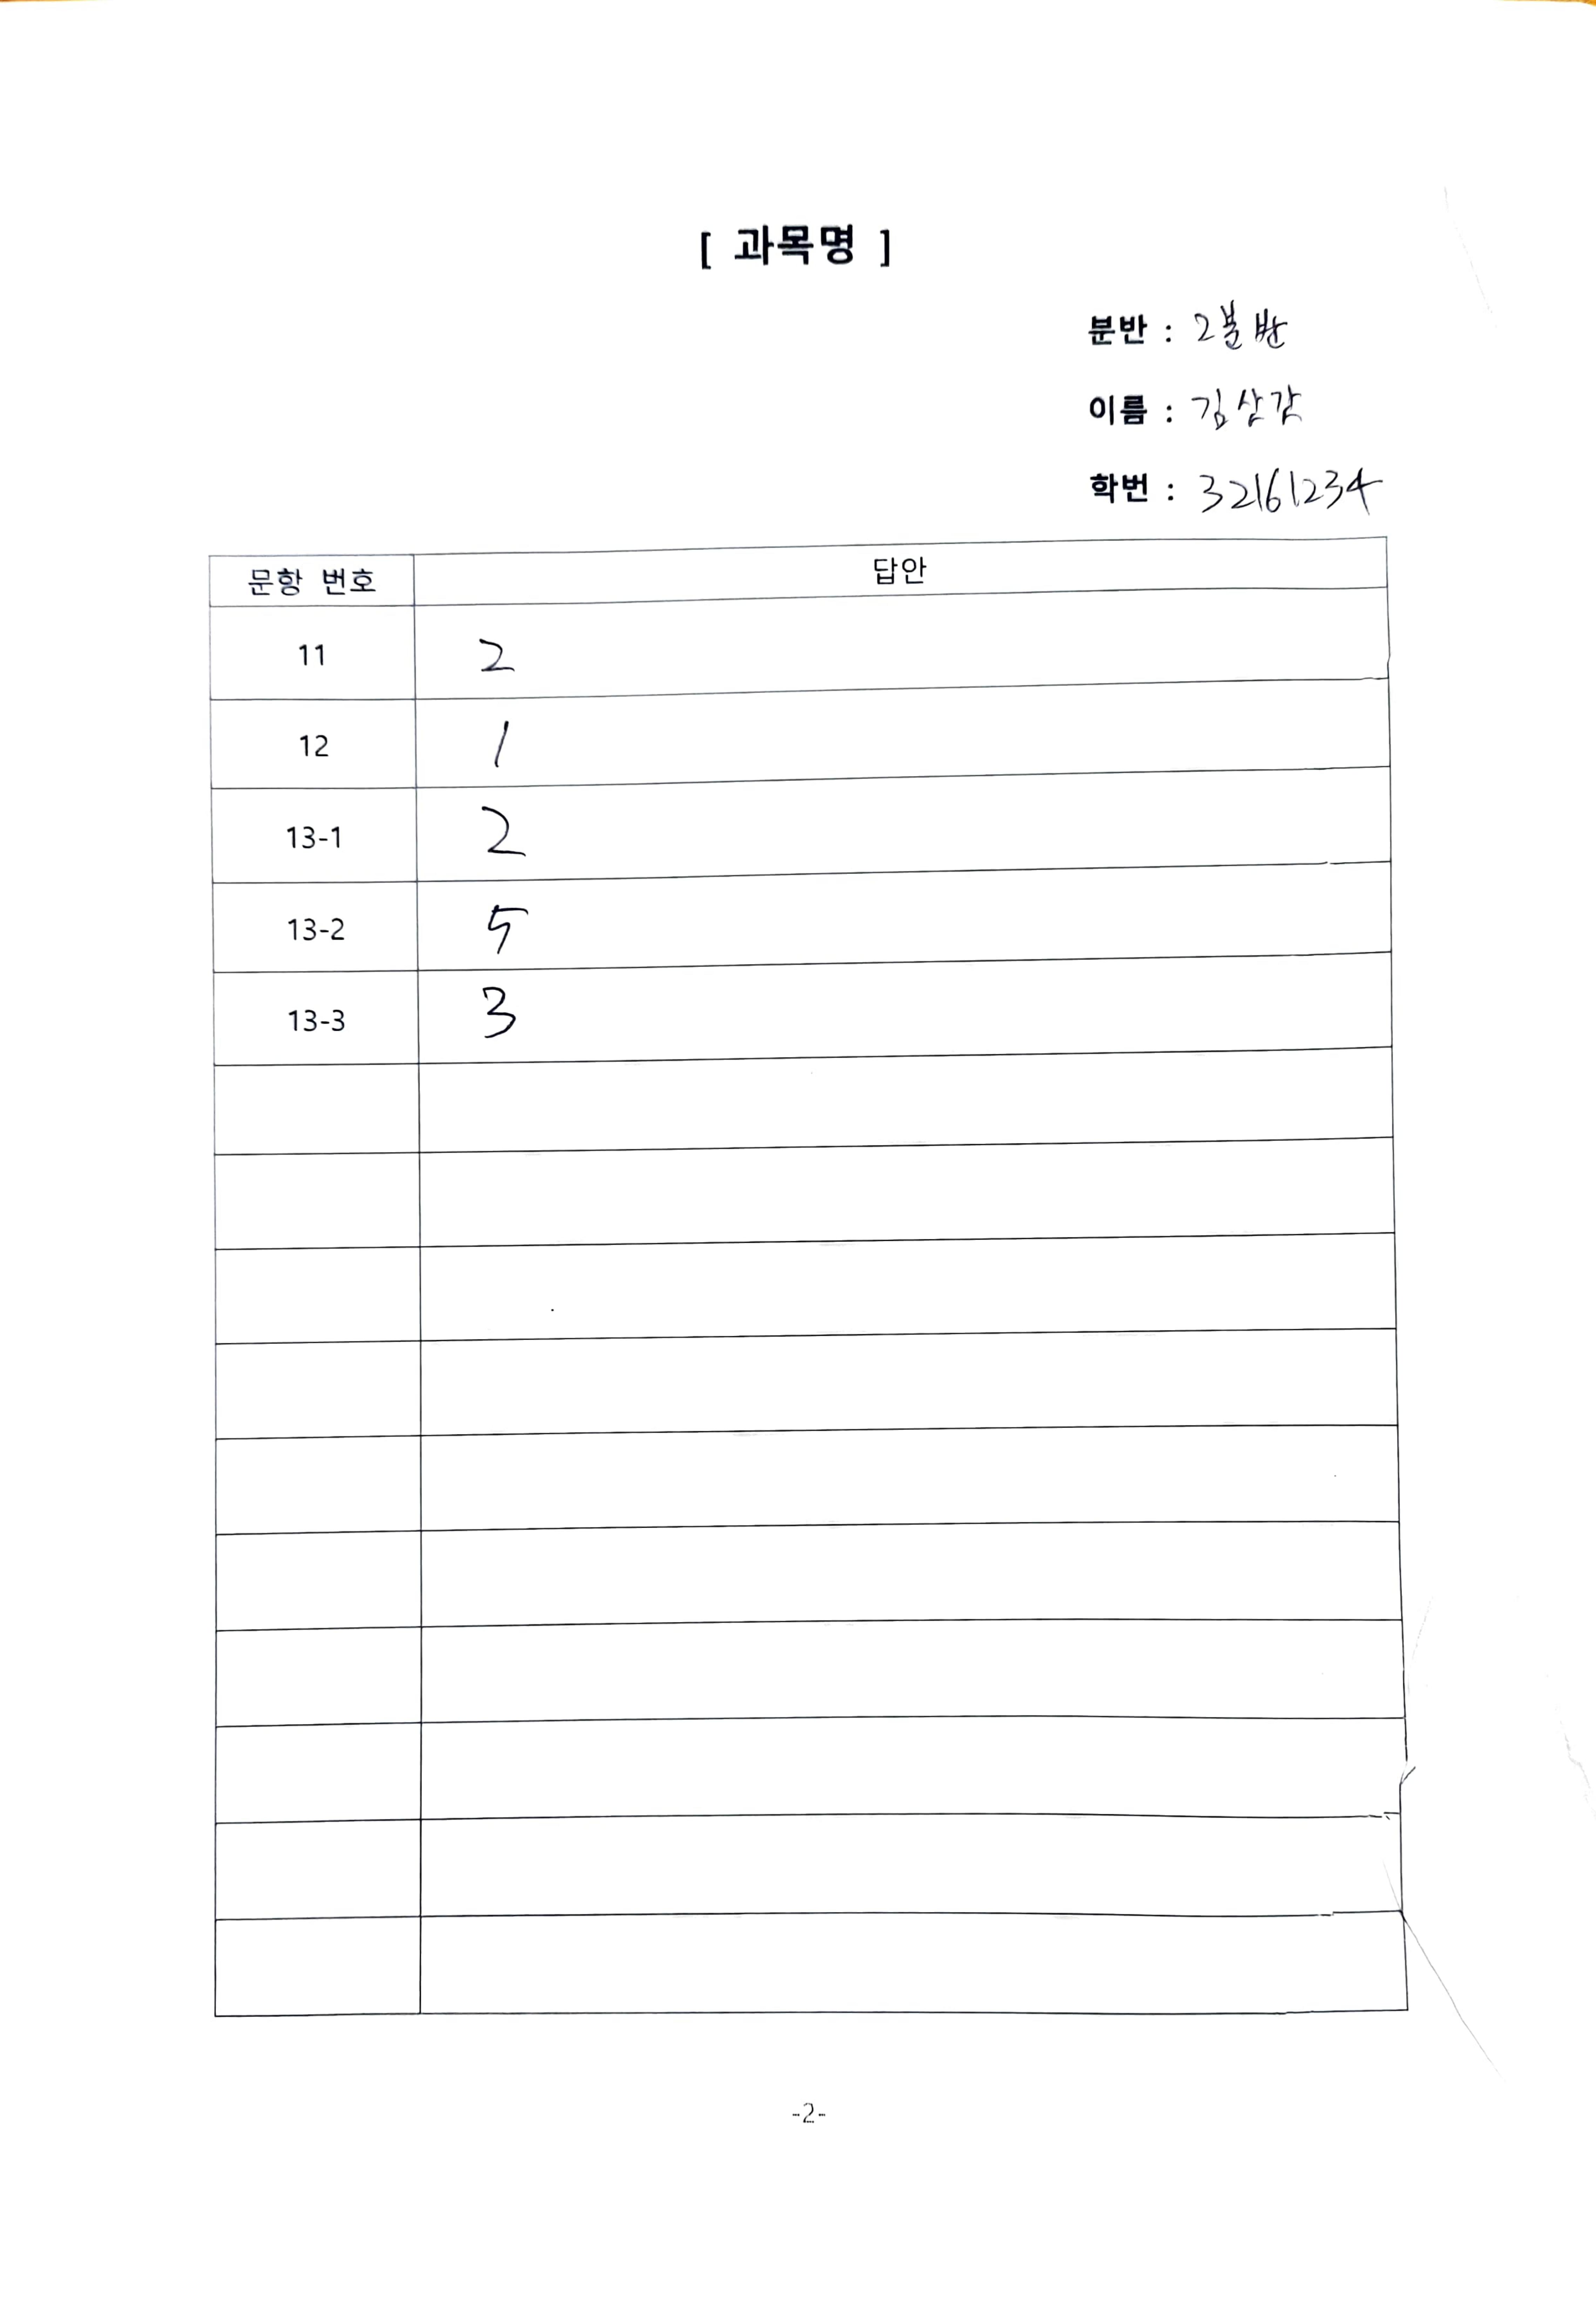 [ 과목명 ]
분반 : 2분반
이름 : 김삿갓
학번 : 32161234
문항 번호 답안
11 2
12 1
13-1 2
13-2 5
13-3 3
-2-